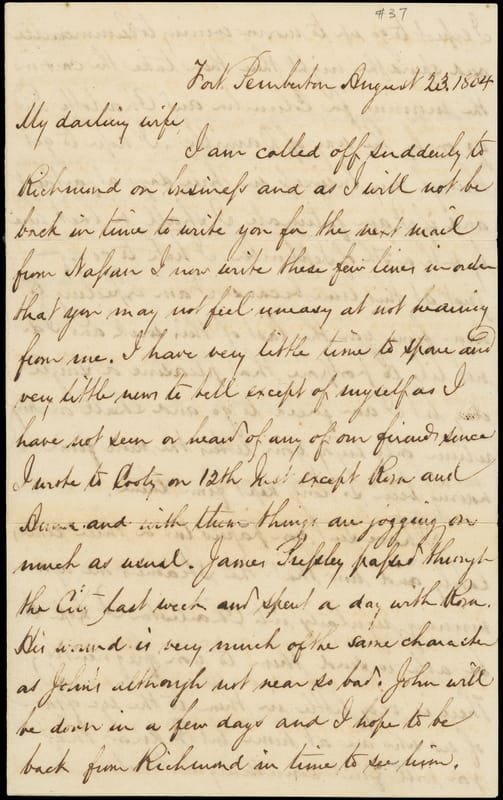 #37
Fort Pemberton August 23. 1864
My darling wife
I am called off suddenly to
Richmond on business and as I will not be
back in time to write you for the next mail
from Nassau I now write these few lines in order
that you may not feel uneasy at not hearing
from me. I have very little time to spare and
very little news to tell except of myself as I
have not seen or heard of any of our friends since
I wrote to Cooty on 12th Inst except Rosa and
Anna and with them things are jogging on
much as usual. James Pressley passed through
the City last week and spent a day with Rosa.
His wound is very much of the same character
as John's although not near so bad. John will
be down in a few days and I hope to be
back from Richmond in time to see him.